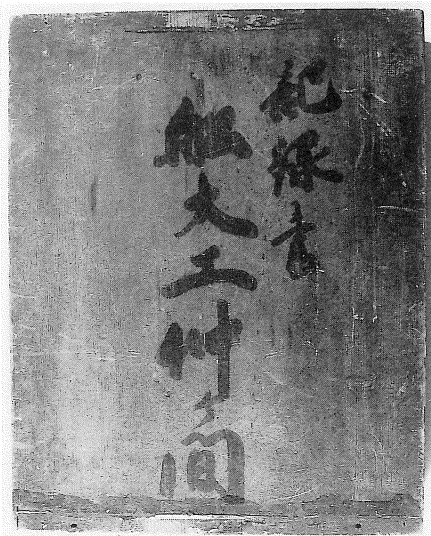 記録書
船大工仲ヶ間